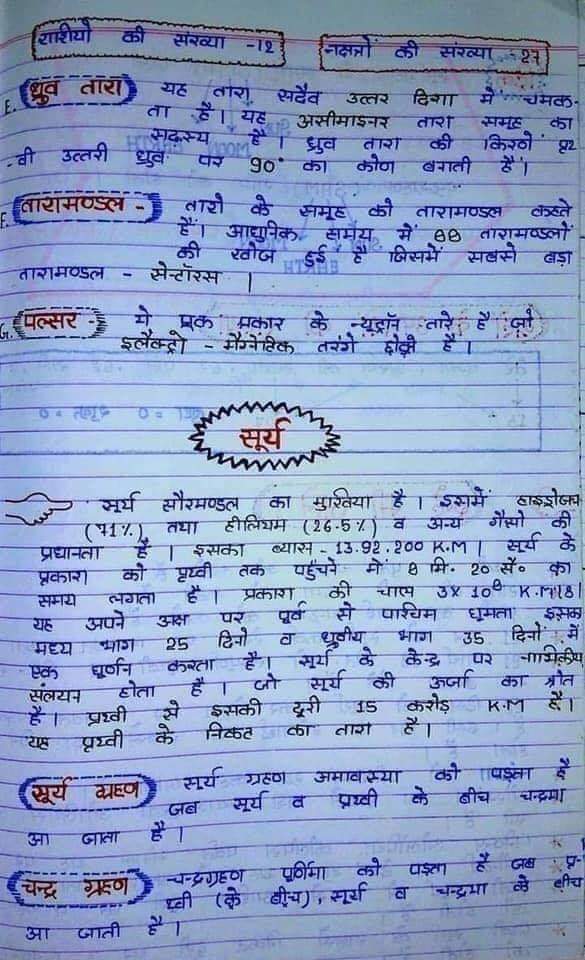 राशीयो की संख्या -12
नक्षत्रों की संख्या - 27
E. ध्रुव तारा यह तारा सदैव उत्तर दिशा में चमक
ता है। यह असीमाइनर तारा समूह का
सदस्य है। ध्रुव तारा की किरणें पृट
-वी उत्तरी ध्रुव पर 90° का कोण बनाती है।
F. तारामण्डल - तारो के समूह को तारामण्डल कहते
हैं। आधुनिक समय में 88 तारामण्डलों
की खोज हुई है जिसमें सबसे बड़ा
तारामण्डल - सेन्टॉरस ।
G. पल्सर - ये एक प्रकार के न्यूट्रॉन तारे है जो
इलैक्ट्रो - मैग्नेटिक तरंगे छोड़ते है।
सूर्य
सूर्य सौरमण्डल का मुखिया है। इसमें हाइड्रोजन
(71%) तथा हीलियम (26.5%) व अन्य गैसो की
प्रधानता है। इसका व्यास - 13.92.200 K.M। सूर्य के
प्रकाश को पृथ्वी तक पहुँचने में 8 मि. 20 सै० का
समय लगता है। प्रकाश की चाल 3x10⁸ K.M/8।
यह अपने अक्ष पर पूर्व से पश्चिम घूमता इसका
मध्य भाग 25 दिनो व ध्रुवीय भाग 35 दिनों में
एक घूर्णन करता है। सूर्य के केन्द्र पर नाभिकीय
संलयन होता है। जो सूर्य की ऊर्जा का श्रोत
है। पृथ्वी से इसकी दूरी 15 करोड़ K.M है।
यह पृथ्वी के निकट का तारा है।
सूर्य ग्रहण सूर्य ग्रहण अमावस्या को पड़ता है
जब सूर्य व पृथ्वी के बीच चन्द्रमा
आ जाता है।
चन्द्र ग्रहण चन्द्रग्रहण पूर्णिमा को पड़ता है जब पृ-
थ्वी (के बीच), सूर्य व चन्द्रमा के बीच
आ जाती है।